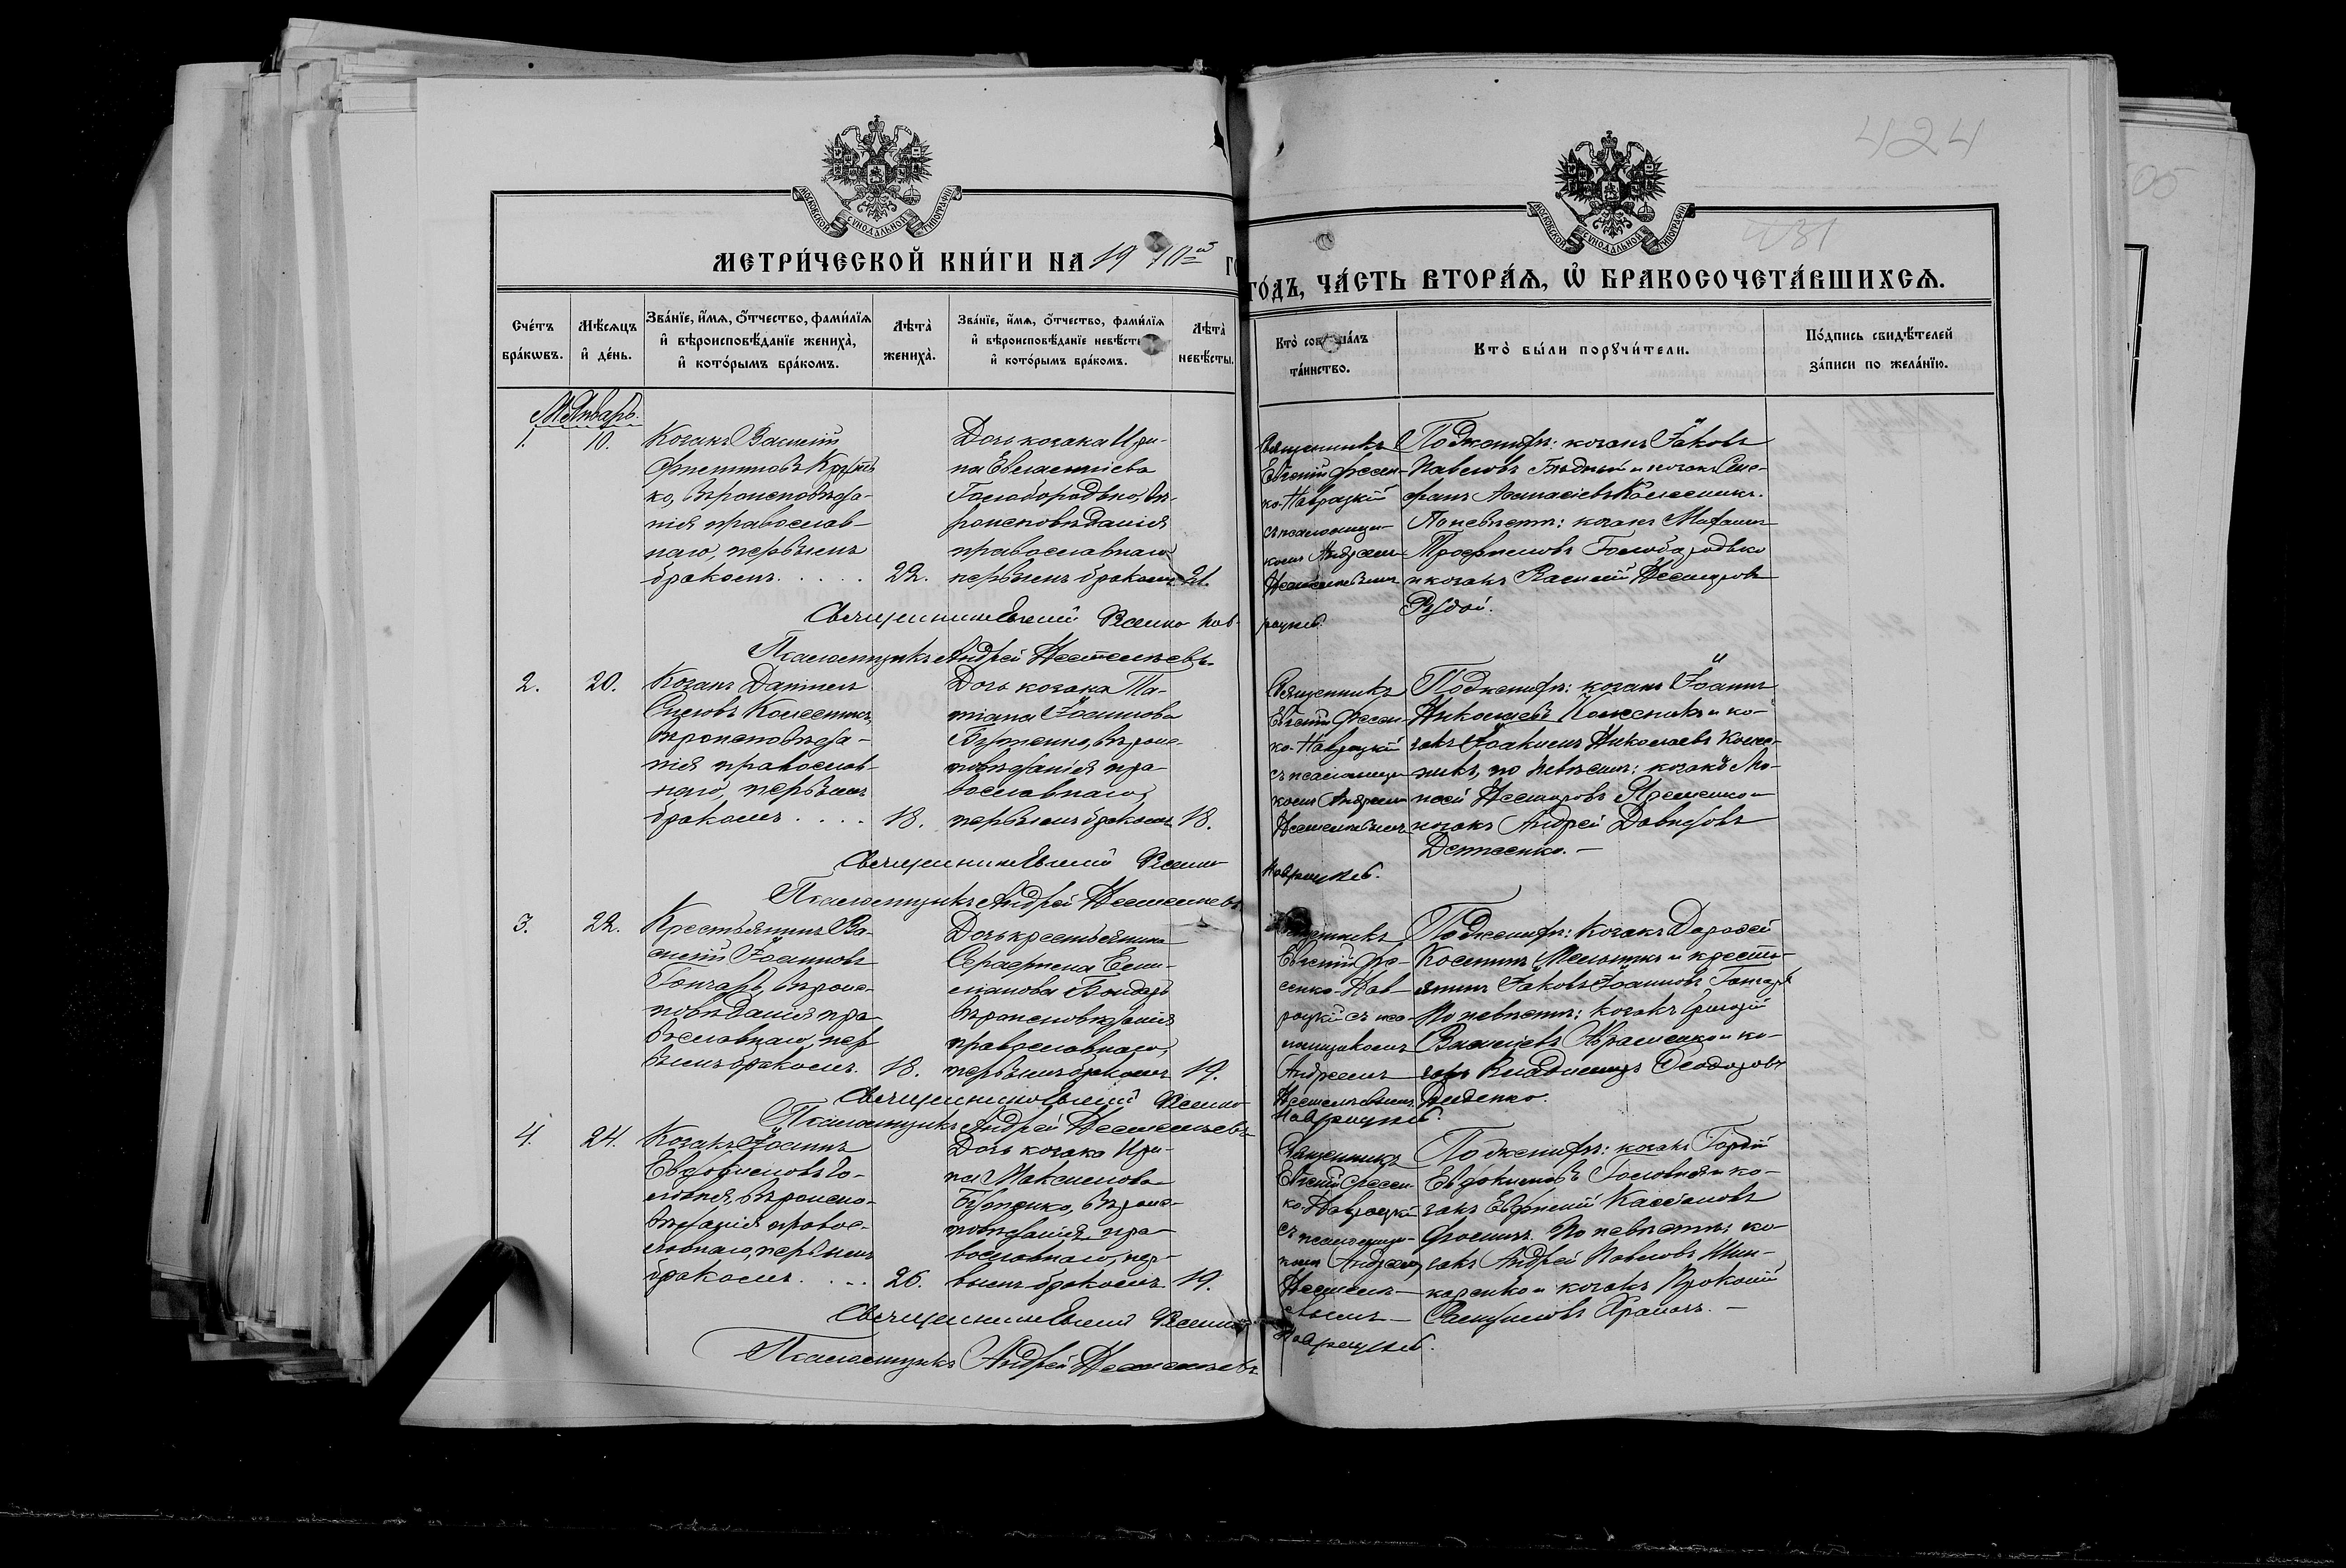 424
431
МОСКОВСКОЙ СѴНОДАЛЬНОЙ ТИПОГРАФІИ
МОСКОВСКОЙ СѴНОДАЛЬНОЙ ТИПОГРАФІИ
МЕТРИ́ЧЕСКОЙ КНИ́ГИ НА 1910й
ГО́ДЪ, ЧА́СТЬ ВТОРА́Ѧ, Ѡ҆ БРАКОСОЧЕТА́ВШИХСѦ.
Сче́тъ бра́кѡвъ.
Мѣ́сѧцъ и҆ де́нь.
Зва́нїе, и҆́мѧ, ѻ҆́тчество, фами́лїѧ и҆ вѣроисповѣ́данїе жениха̀, и҆ кото́рымъ бра́комъ.
Лѣта̀ жениха̀.
Зва́нїе, и҆́мѧ, ѻ҆́тчество, фами́лїѧ и҆ вѣроисповѣ́данїе невѣ́сты и҆ кото́рымъ бра́комъ.
Лѣта̀ невѣ́сты.
та́инство.
Кто̀ бы́ли порꙋчи́тели.
По́дпись свидѣ́телей за́писи по жела́нїю.
М. Январь.
1.
10.
Козакъ Василій
ко, вѣроисповѣда-
нія православ-
наго, первымъ
бракомъ.
22.
Дочь козака Ири-
на
Голобородько, вѣ-
роисповѣданія
православнаго
первымъ бракомъ
21.
Священникъ
Евгеній Фесен-
ко-Навроцкій
съ псаломщи-
комъ Андреемъ
По женихѣ: козакъ Іаковъ
Павловъ и козакъ Сте-
фанъ Колесникъ.
По невѣстѣ: козакъ
Трофимовъ Голобородько
и козакъ Василій Несторовъ
Рудой.
Священникъ Евгеній Фесенко-Нав-
роцкій.
Псаломщикъ Андрей
2.
20.
Козакъ Даніилъ
Колесникъ,
вѣроисповѣда-
нія православ-
наго, первымъ
бракомъ
18.
Дочь козака Та-
тіана Іоаннова
вѣроис-
повѣданія пра-
вославнаго,
первымъ бракомъ
18.
Священникъ
Евгеній Фесен-
ко-Навроцкій
съ псаломщи-
комъ Андреемъ
По женихѣ: козакъ Іоаннъ
Николаевъ Колесникъ и ко-
закъ Іоакимъ Николаевъ Колес-
никъ, по невѣстѣ: козакъ Мо-
исей Несторовъ
козакъ Андрей Давидовъ
Священникъ Евгеній Фесенко
Навроцкій.
Псаломщикъ Андрей
3.
22.
Крестьянинъ Ва-
силій Іоанновъ
Гончаръ, вѣроис-
повѣданія пра-
вославнаго, пер-
вымъ бракомъ.
18.
Дочь крестьянина
Бондарь
вѣроисповѣданія
православнаго,
первымъ бракомъ
19.
Священникъ
Евгеній Фе-
сенко-Нав-
роцкій съ пса-
ломщикомъ
Андреемъ
По женихѣ: Козакъ Дорофей
и кресть-
янинъ Іаковъ Іоанновъ Гончаръ
По невѣстѣ: козакъ Григорій
Васильевъ Авраменко и ко-
закъ Владиміръ Ѳеодоровъ
Диденко.
Священникъ Евгеній Фесенко
Навроцкій.
Псаломщикъ Андрей
4.
24.
Козакъ Іоаннъ
Евдокимовъ Го-
ловня, вѣроиспо-
вѣданія правос-
лавнаго, первымъ
бракомъ.
26.
Дочь козака Ири-
на Максимова
вѣроис-
повѣданія пра-
вославнаго, пер-
вымъ бракомъ
19.
Священникъ
Евгеній Фесен-
ко-Навроцкій
съ псаломщи-
комъ Андреемъ
По женихѣ: козакъ Гордій
Евдокимовъ Головня и ко-
закъ Евфимій
По невѣстѣ: ко-
закъ Андрей Павловъ Шин-
каренко и козакъ Прокопій
Священникъ Евгеній Фесенко
Навроцкій.
Псаломщикъ Андрей